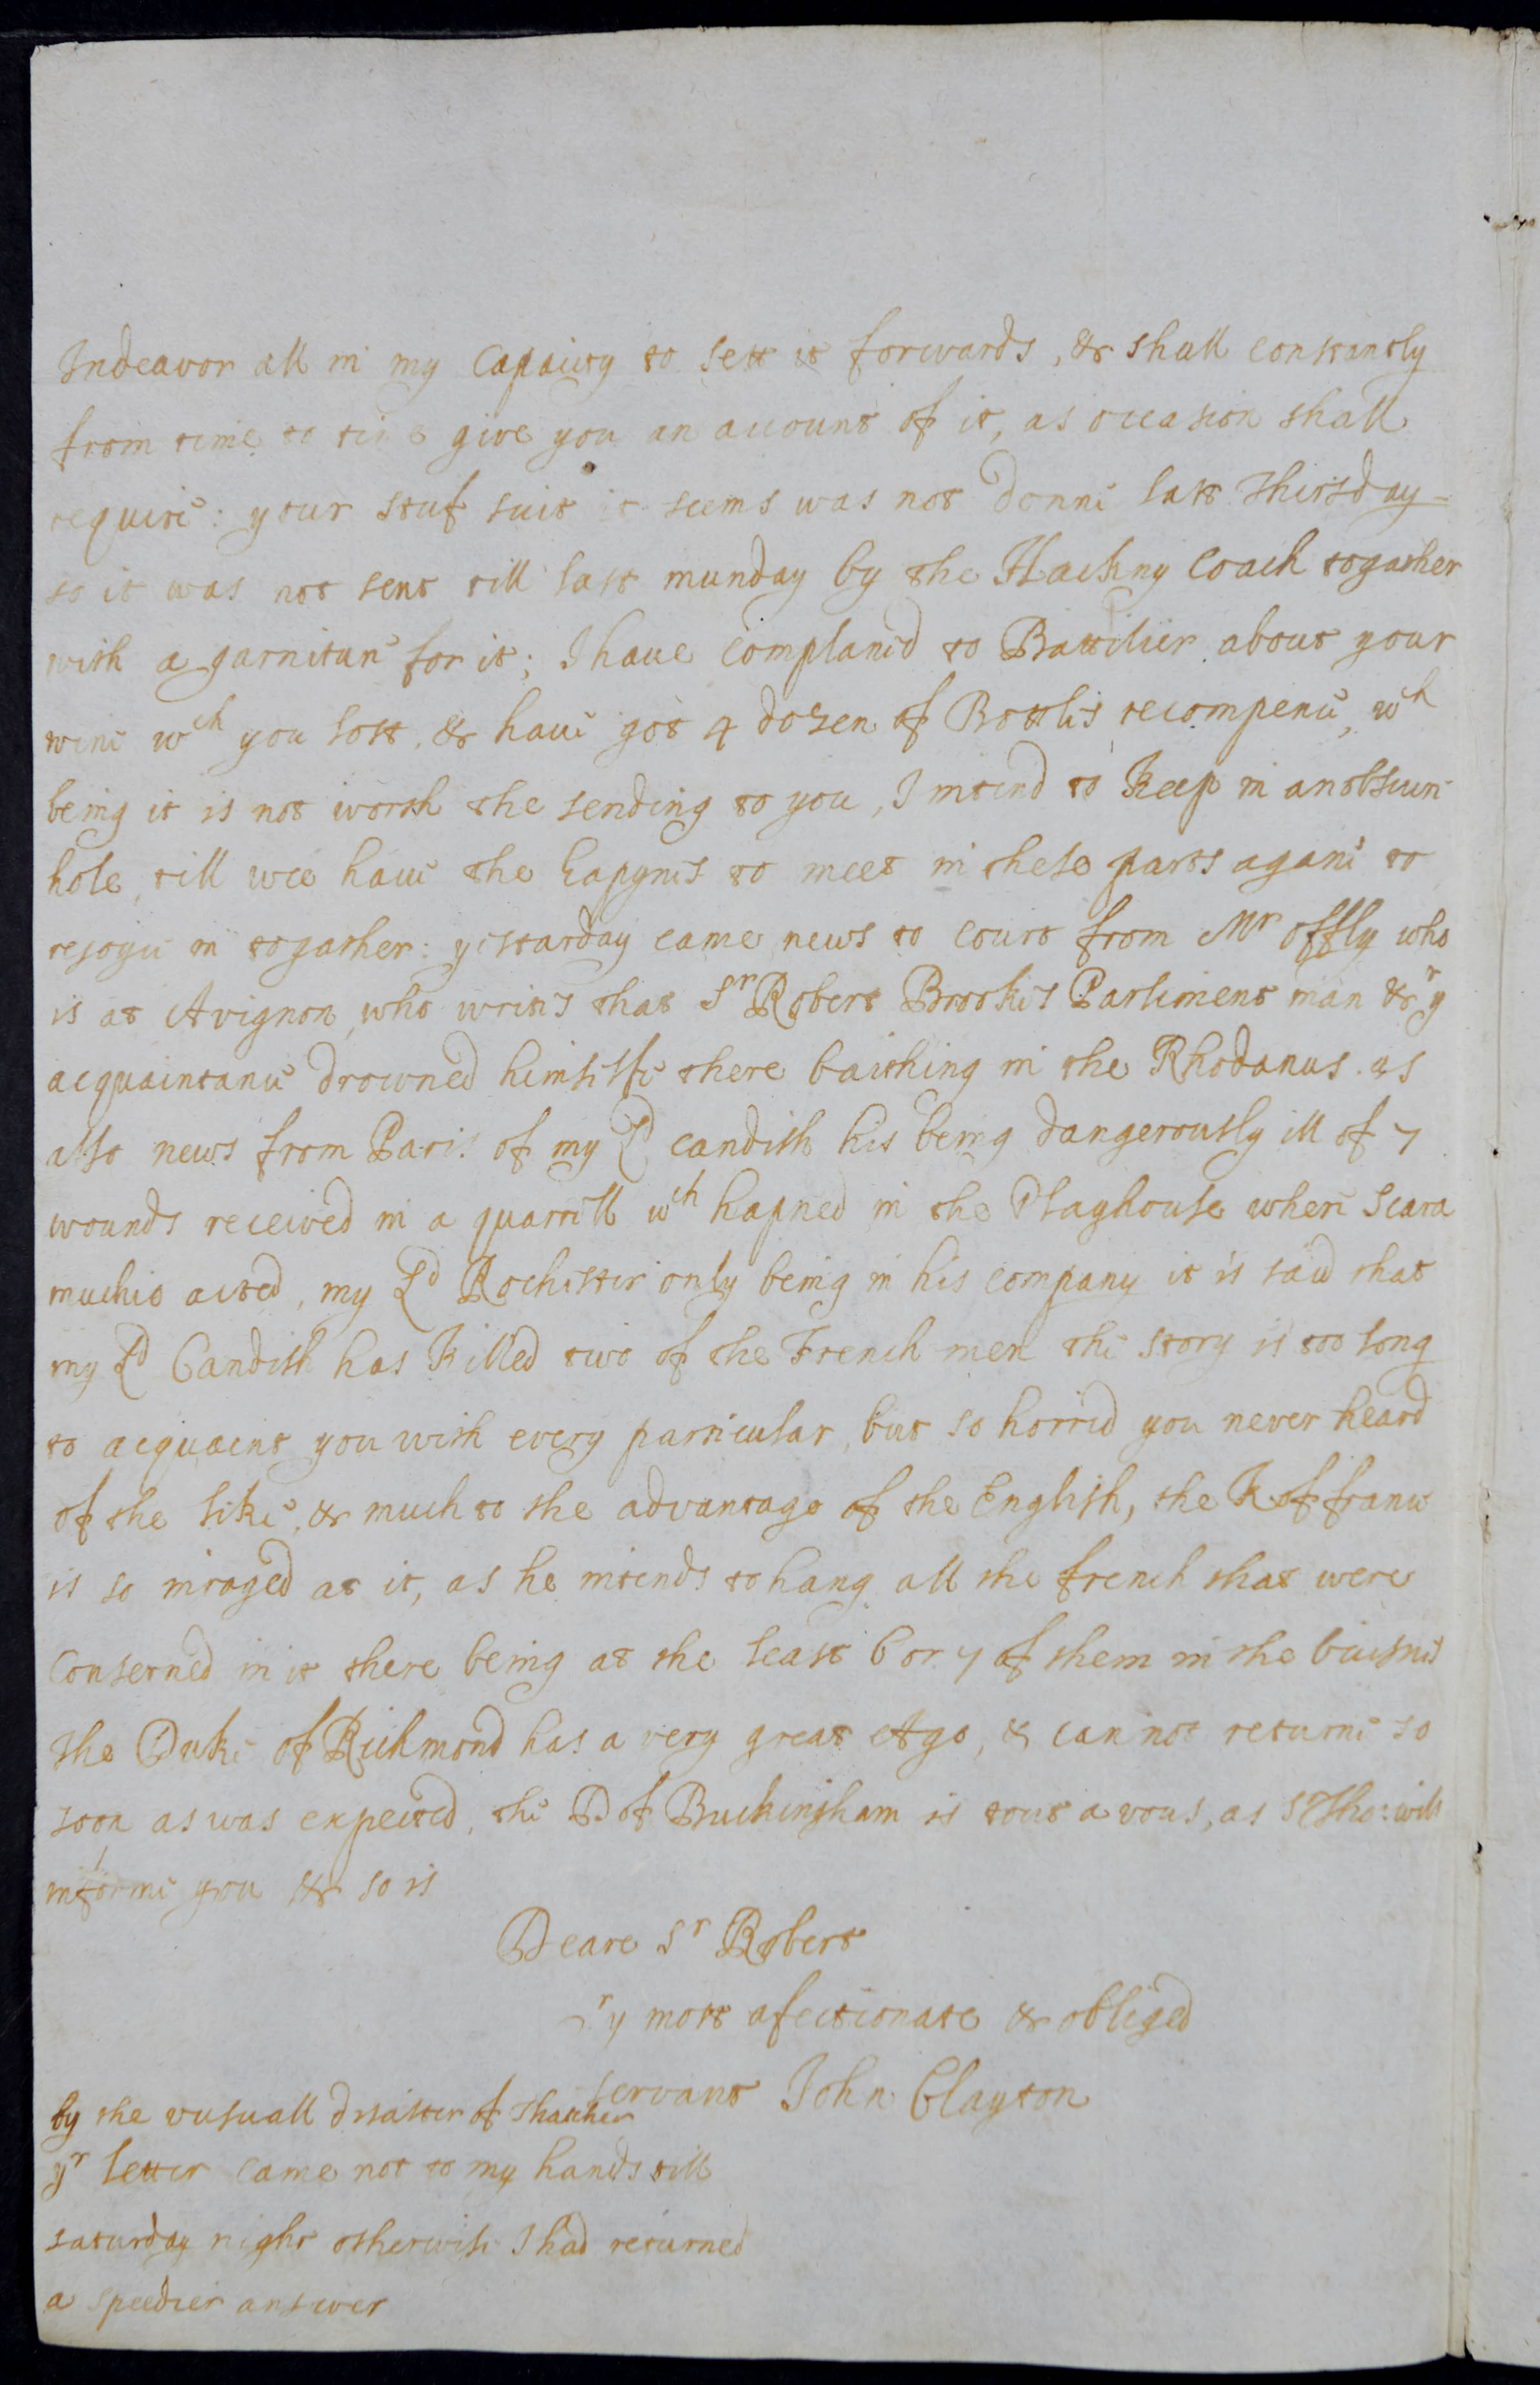 Indeavor all in my Capacity to sett it forwards, & shall constantly
from time to time give you an account of it, as occasion shall
require: your stuf suit it seems was not donne last Thirsday
so it was not sent till last munday by the Hackny Coach togather
with a garniture for it; I haue complaned to Battilier about your
wine wch you lost, & haue got 4 dozen of Bottles recompence, wh
being it is not worth the sending to you, I intend to Keep in an obscure
hole, till wee haue the hapynes to meet in these parts agane to
rejoyce in togather: yestarday came news to court from Mr offly who
is at Avignon, who writes that Sr Robert Brookes Parliment man & yr
acquaintance drowned himselfe there baithing in the Rhodanus. as
also news from Paris of my Ld Candish his being dangerously ill of 7
wounds received in a quarrell wch hapned in the Playhouse where Scara
muchio acted, my Ld Rochester only being in his company it is said that
my Ld Candish has Killed two of the French men the story is too long
to acquaint you with every particular, but so horrid you never heard
of the like, & much to the advantage of the English, the K of france
is so inraged at it, as he intends to hang all the french that were
Conserned in it there being at the least 6 or 7 of them in the buisnes
The Duke of Richmond has a very great Ago, & can not returne so
soon as was expected, the D of Buckingham is tout a vous, as Sr Tho: will
informe you & so is
Deare Sr Robert
yr most afectionate & obliged
servant John Clayton
by the vusuall disaster of Thatcher
yr letter came not to my hands till
saturday night otherwise I had returned
a speedier answer